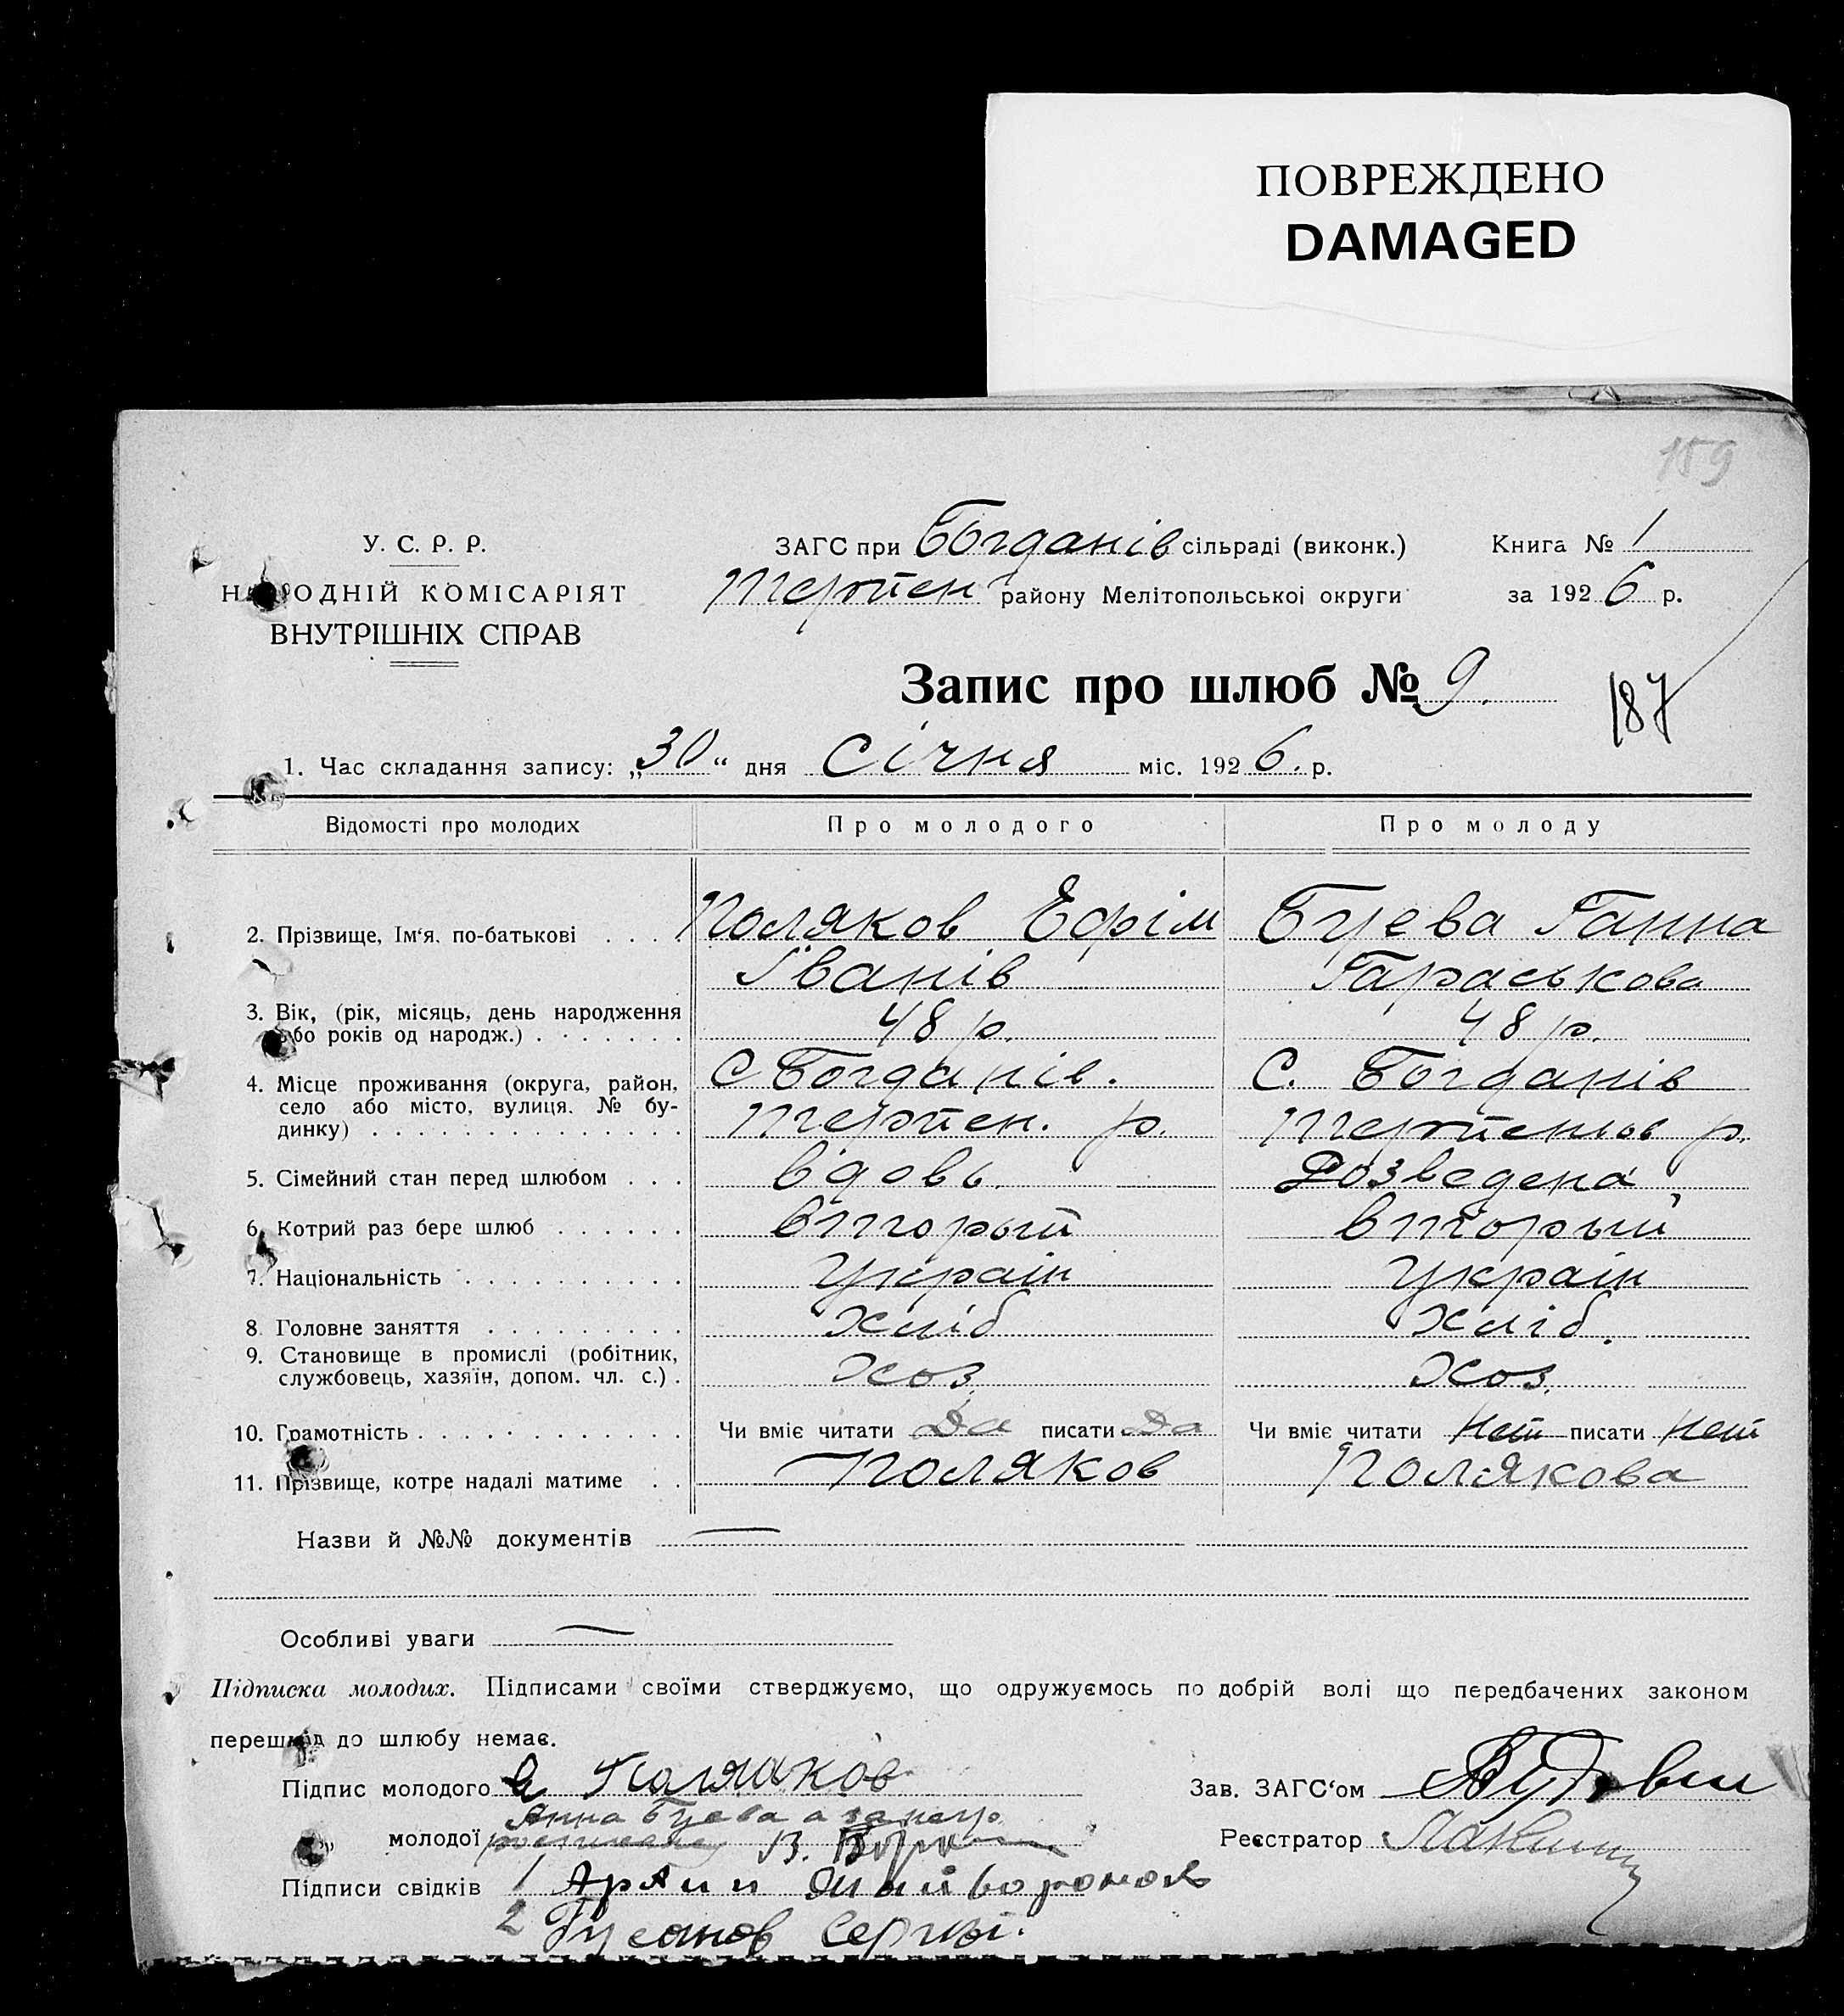 ПОВРЕЖДЕНО
DAMAGED
159
У. С. Р. Р.
НАРОДНІЙ КОМІСАРІЯТ
ВНУТРІШНІХ СПРАВ
ЗАГС при Богданів сільраді (виконк.)
Терпен району Мелітопольської округи
Книга № 1
за 1926 р.
Запис про шлюб № 9.
187
1. Час складання запису: „30“ дня Січня міс. 1926. р.
Відомості про молодих Про молодого Про молоду
2. Прізвище, Ім‘я, по-батькові . . . . Поляков Ефім Буева Ганна
Іванів Гараськова
3. Вік, (рік, місяць, день народження
або років од народж.) . . . . . . . 48 р. 48 р.
4. Місце проживання (округа, район, С Богданів. С. Богданів
село або місто, вулиця, № бу-
динку) . . . . . . . . . . . . . . Терпен. р. р.
5. Сімейний стан перед шлюбом . . . вдовь. Розведена
6. Котрий раз бере шлюб . . . . . . вторый вторый
7. Національність . . . . . . . . . . Україн Україн
8. Головне заняття . . . . . . . . . Хліб Хліб.
9. Становище в промислі (робітник,
службовець, хазяїн, допом. чл. с.) . Хоз. Хоз.
10. Грамотність . . . . . . . . . . . . Чи вміє читати Да писати Да Чи вміє читати Нет писати Нет
11. Прізвище, котре надалі матиме . . Поляков Полякова
Назви й №№ документів —
Особливі уваги —
Підписка молодих. Підписами своїми стверджуємо, що одружуємось по добрій волі що передбачених законом
перешкід до шлюбу немає.
Підпис молодого Поляков
Зав. ЗАГС‘ом
Анна Буева а за негр.
молодої В.
Реєстратор
Підписи свідків 1
2 Гусанов Сергій.